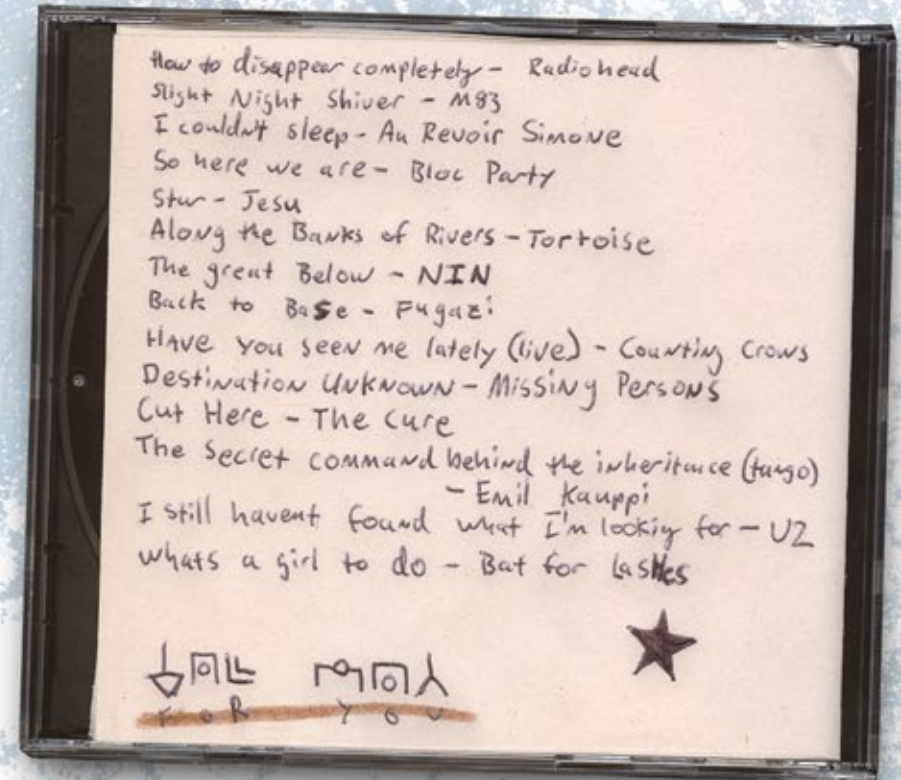 How to disappear completely - Radiohead
Slight Night Shiver - M83
I couldn't sleep - Au Revoir Simone
So here we are - Bloc Party
Star - Jesu
Along the Banks of Rivers - Tortoise
The great Below - NIN
Back to Base - Fugazi
Have you seen me lately (live) - Counting Crows
Destination Unknown - Missing Persons
Cut Here - The Cure
The Secret command behind the inheritance (tango)
- Emil Kauppi
I still havent found what I'm lookig for - U2
Whats a girl to do - Bat for Lashes
FOR YOU